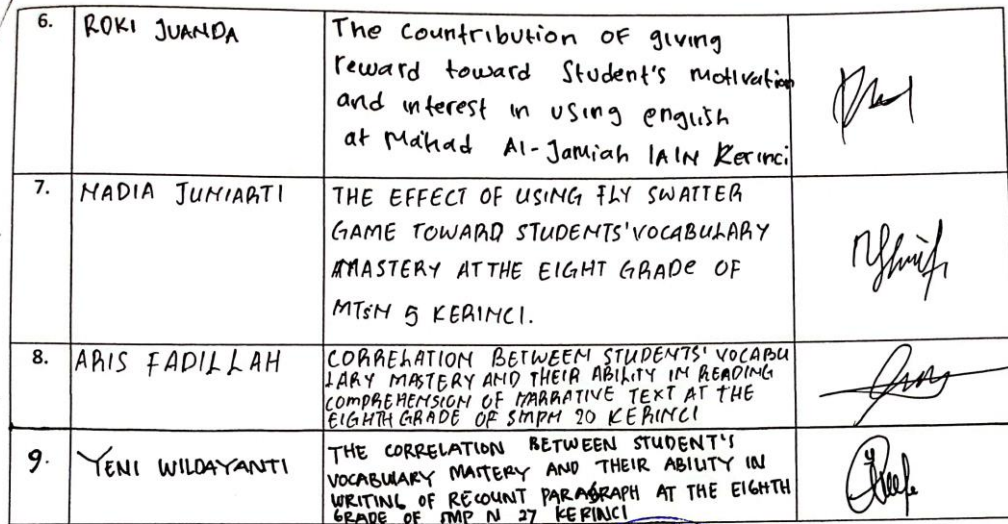 6. ROKI JUANDA
The Countribution of giving
reward toward Student's Motivation
and interest in using english
at Ma'had Al-Jamiah IAIN Kerinci
7. NADIA JUNIARTI
THE EFFECT OF USING FLY SWATTER
GAME TOWARD STUDENTS' VOCABULARY
MASTERY AT THE EIGHT GRADE OF
MTsN 5 KERINCI.
8. ARIS FADILLAH
CORRELATION BETWEEN STUDENTS' VOCABU
LARY MASTERY AND THEIR ABILITY IN READING
COMPREHENSION OF NARRATIVE TEXT AT THE
EIGHTH GRADE OF SMPN 20 KERINCI
9. YENI WILDAYANTI
THE CORRELATION BETWEEN STUDENT'S
VOCABULARY MASTERY AND THEIR ABILITY IN
WRITING OF RECOUNT PARAGRAPH AT THE EIGHTH
GRADE OF SMP N 27 KERINCI